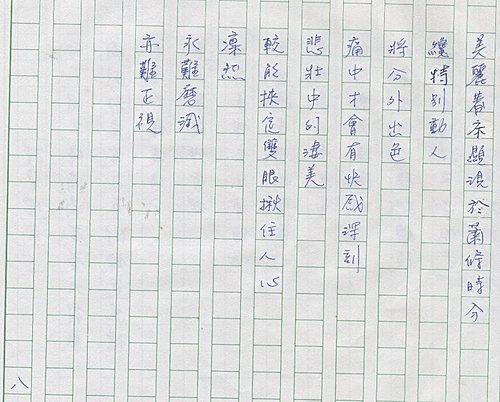 美麗春奈顯現於蕭條時分
纔特別動人
將分外出色
痛中才會有快感深刻
悲壯中的淒美
較能挾這雙眼揪住人心
凜烈
永難磨滅
亦難正視
八